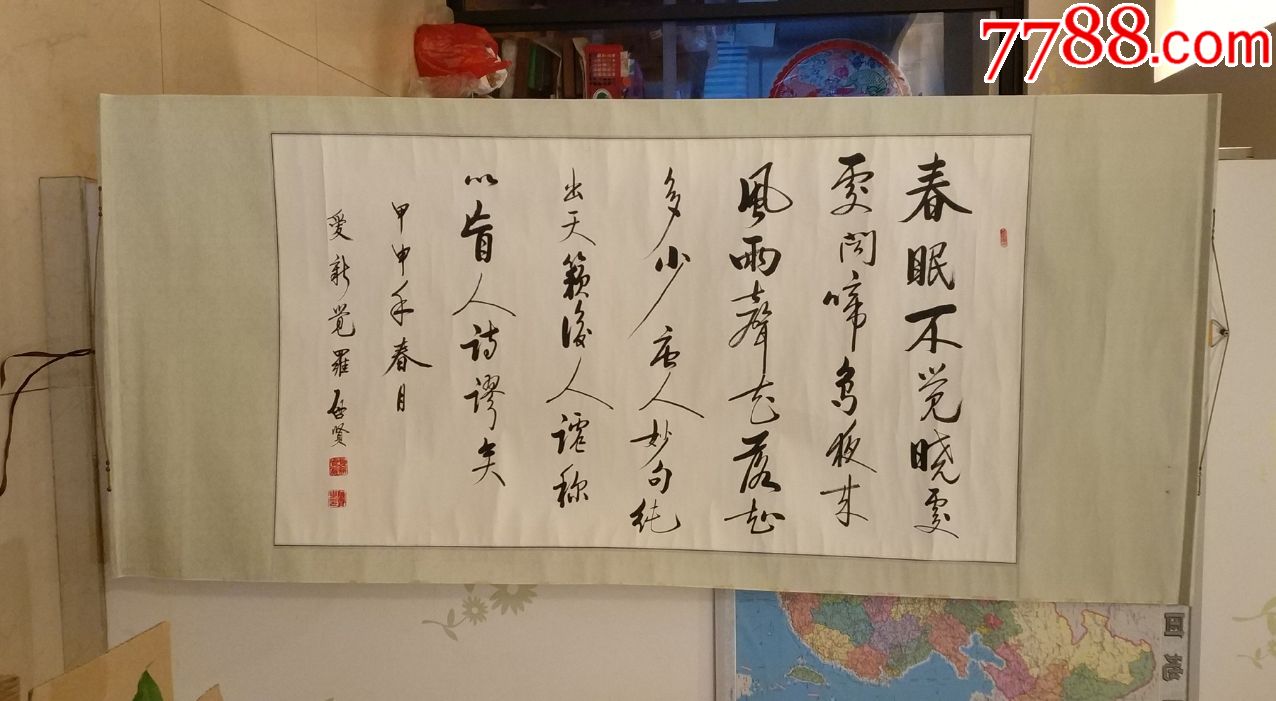 7788.com
春眠不觉晓處
處闻啼鸟夜来
風雨聲花落知
多少唐人妙句纯
出天籁後人谑称
以盲人诗谬矣
甲申年春月
爱新觉羅启贤